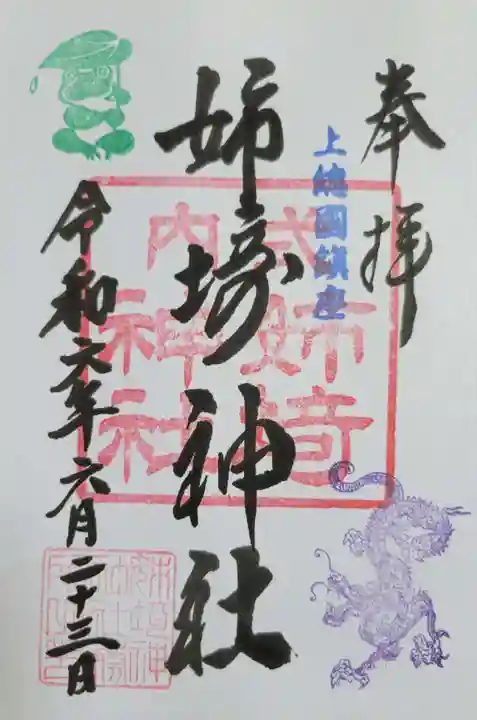 奉拝
上總國鎮座
姉﨑神社
式内
姉埼
神社
令和六年六月二十三日